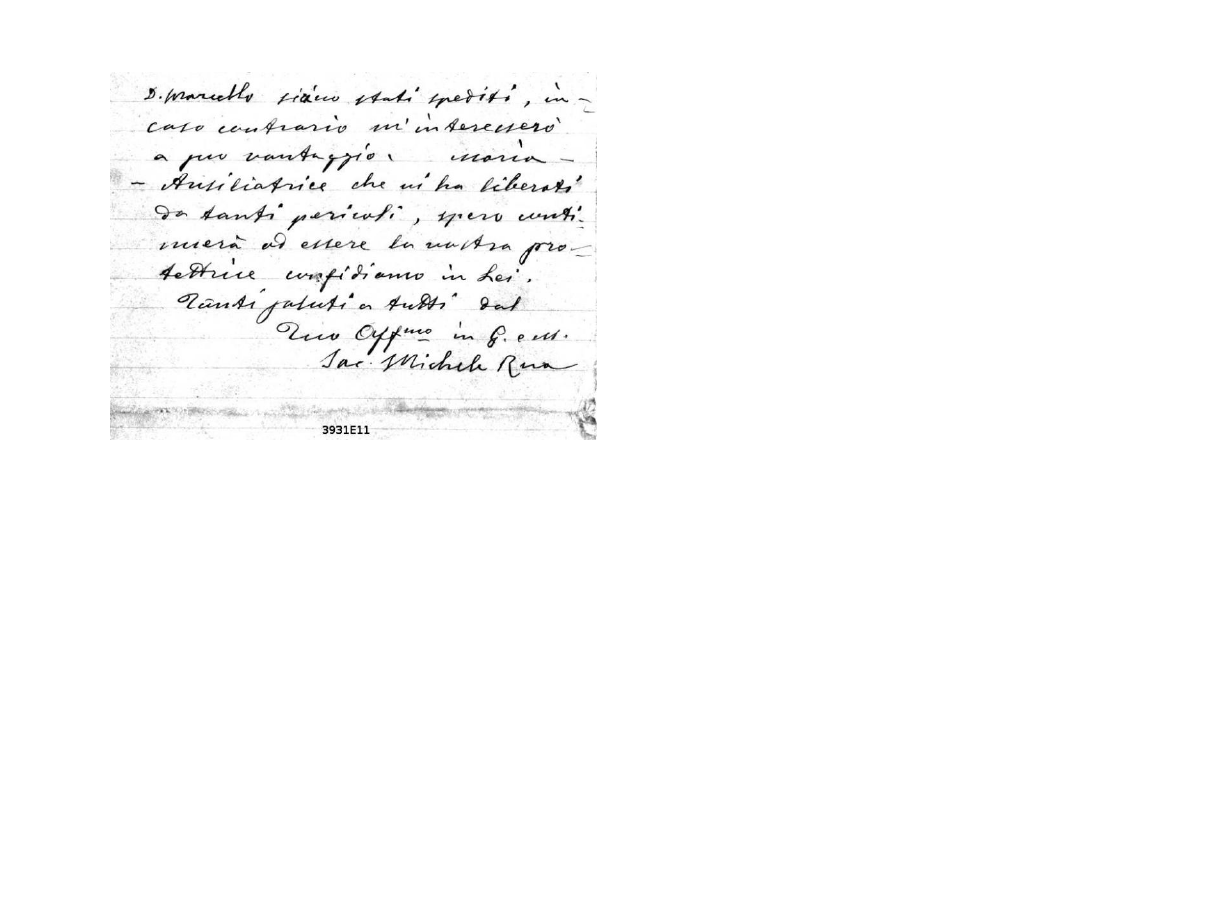 D. Marcello siano stati spediti, in
caso contrario m'interesserò
a suo vantaggio. Maria
- Ausiliatrice che ci ha liberati
da tanti pericoli, spero conti-
nuerà ad essere la nostra pro-
tettrice confidiamo in Lei.
Tanti saluti a tutti dal
Tuo Aff.mo in G. e M.
Sac. Michele Rua
3931E11